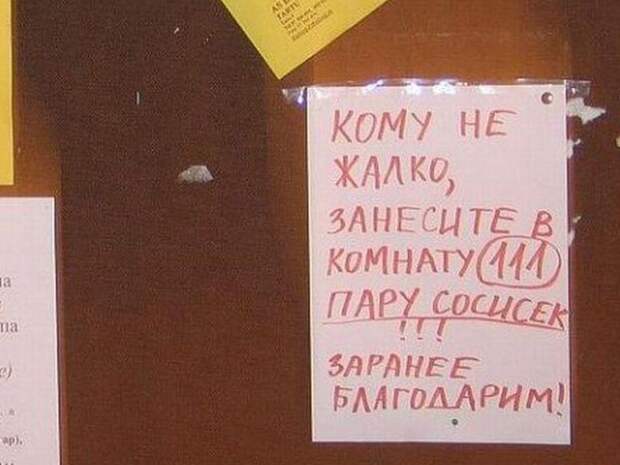 AS
TARTU
КОМУ НЕ
ЖАЛКО,
ЗАНЕСИТЕ В
КОМНАТУ 111
ПАРУ СОСИСЕК
!!!
ЗАРАНЕЕ
БЛАГОДАРИМ!
на
та
с)
а
ар),